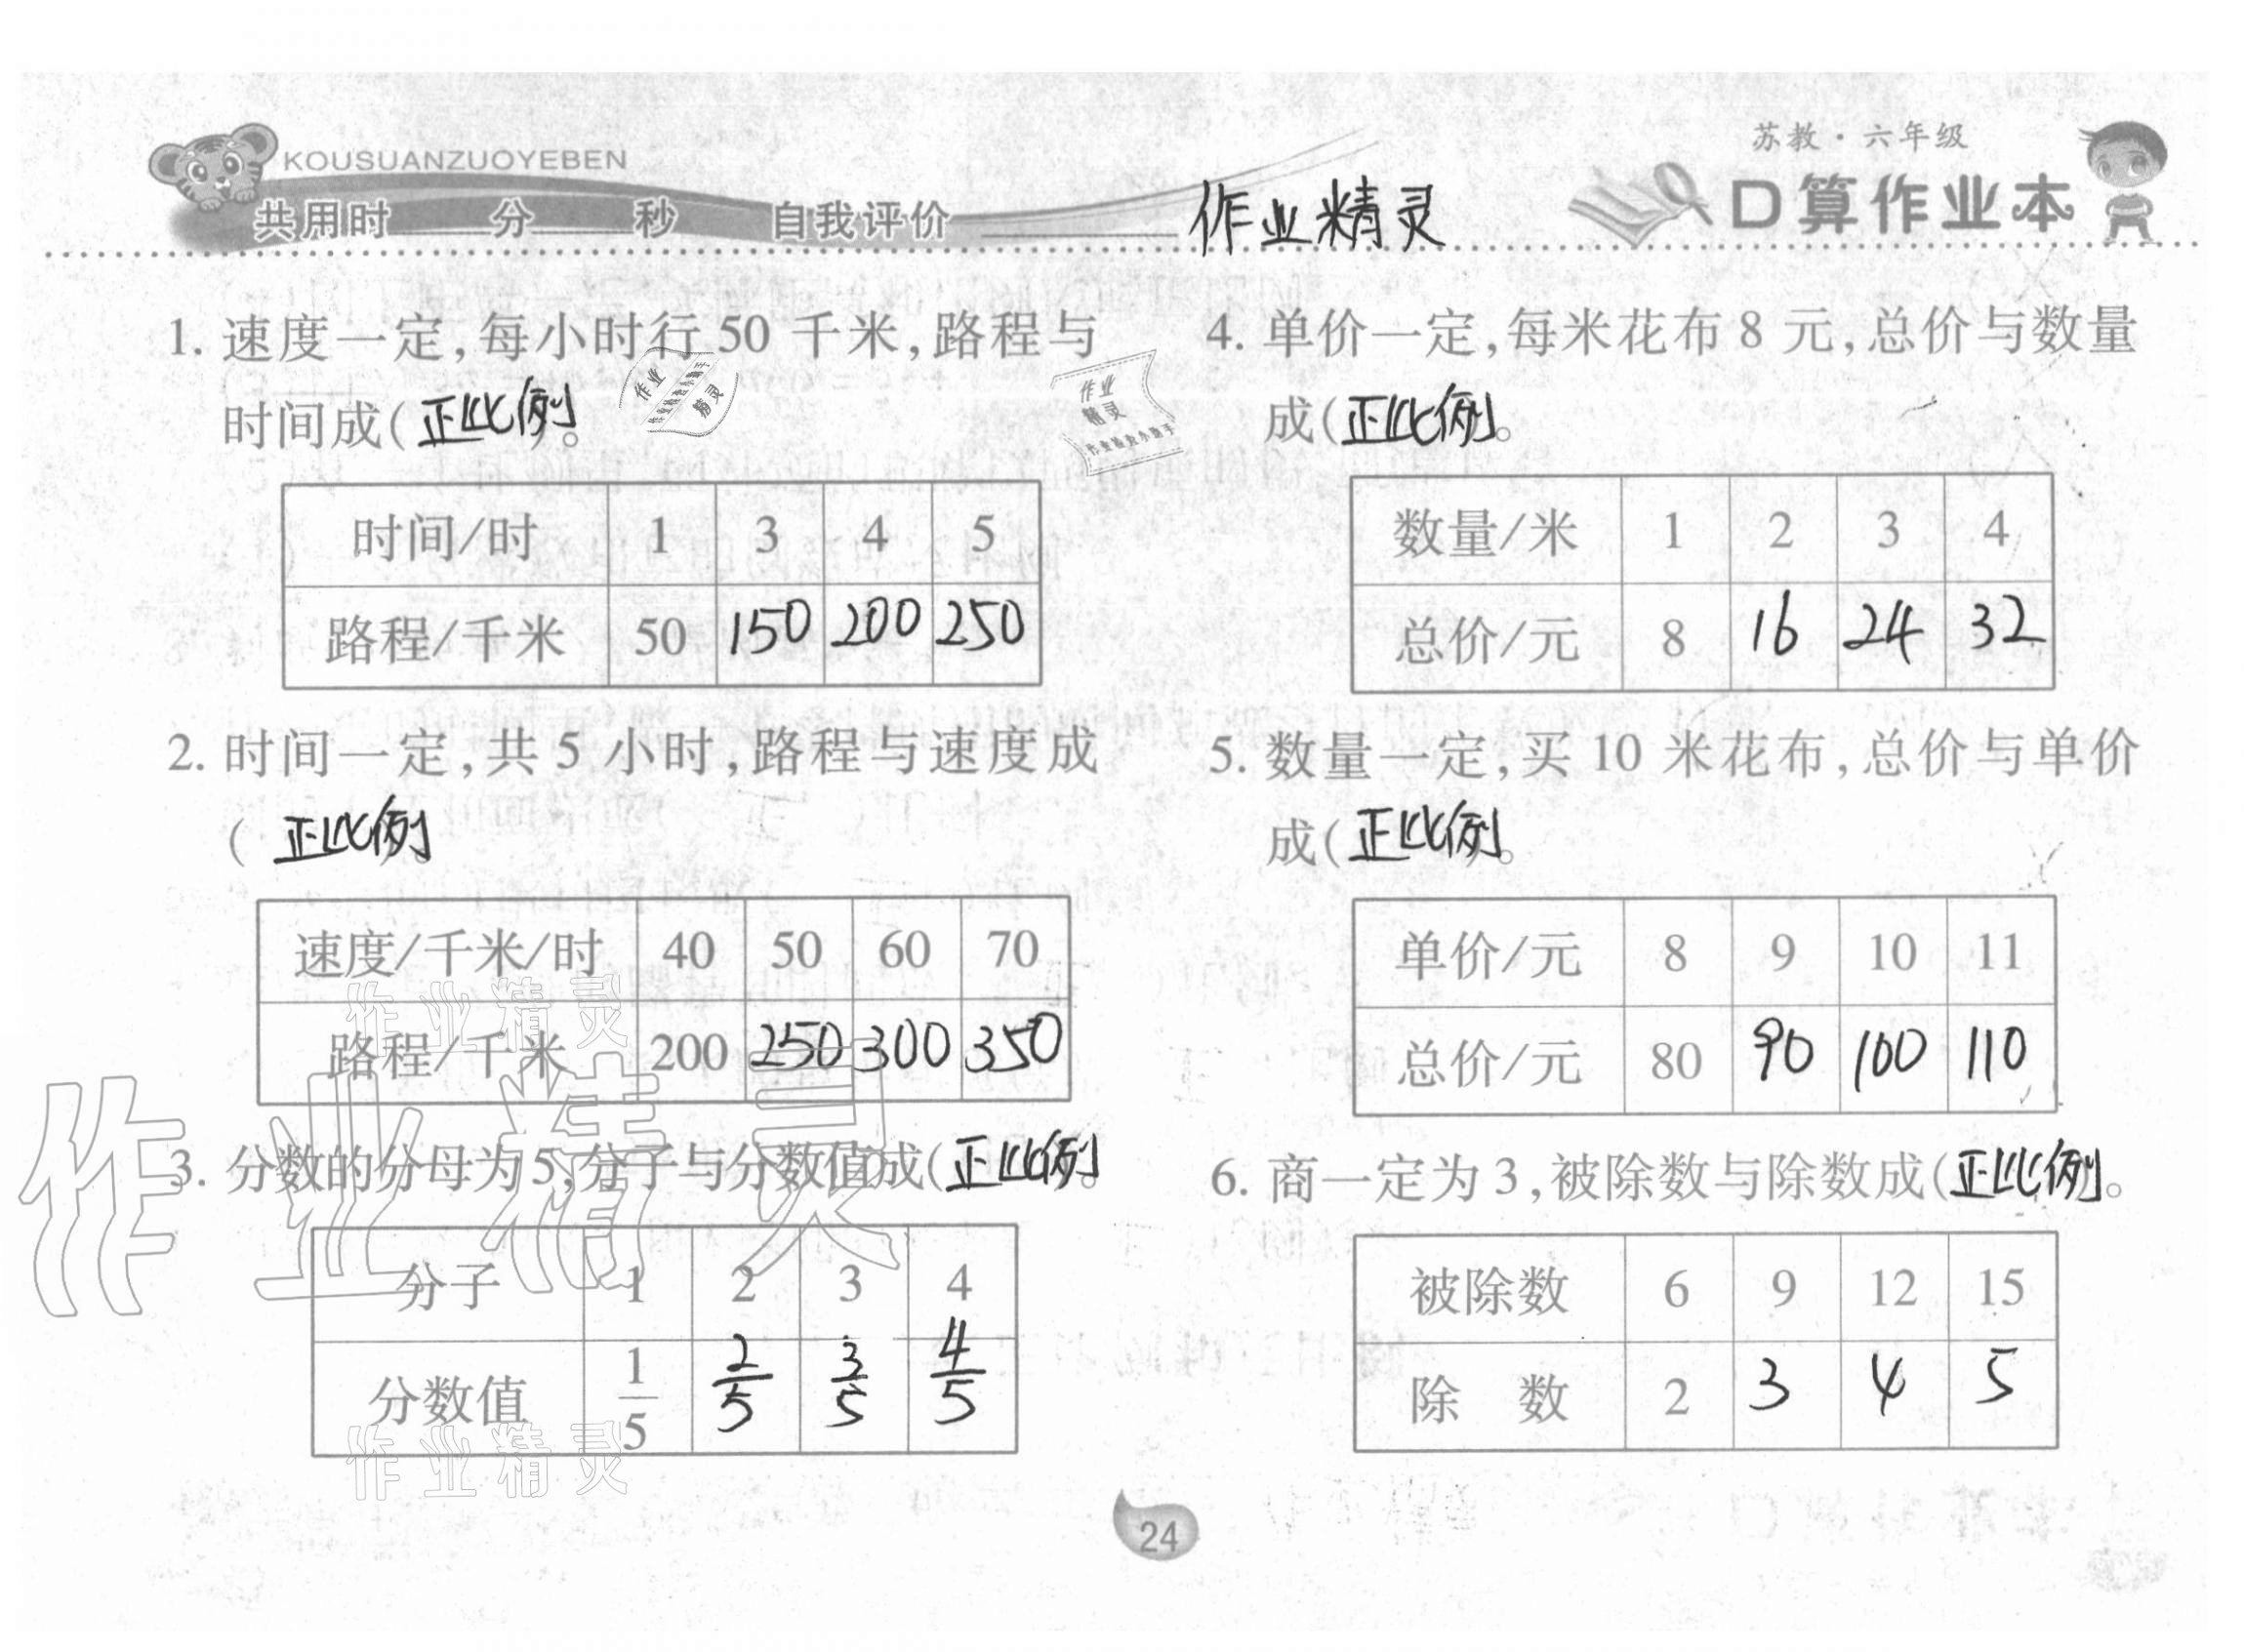 KOUSUANZUOYEBEN
共用时 分 秒 自我评价
作业精灵
苏教·六年级
口算作业本
1. 速度一定,每小时行 50 千米,路程与
时间成(正比例)。
时间/时 1 3 4 5
路程/千米 50 150 200 250
2. 时间一定,共 5 小时,路程与速度成
(正比例)。
速度/千米/时 40 50 60 70
路程/千米 200 250 300 350
3. 分数的分母为 5,分子与分数值成(正比例)。
分子 1 2 3 4
分数值 1/5 2/5 3/5 4/5
4. 单价一定,每米花布 8 元,总价与数量
成(正比例)。
数量/米 1 2 3 4
总价/元 8 16 24 32
5. 数量一定,买 10 米花布,总价与单价
成(正比例)。
单价/元 8 9 10 11
总价/元 80 90 100 110
6. 商一定为 3,被除数与除数成(正比例)。
被除数 6 9 12 15
除 数 2 3 4 5
24
作业精灵
作业精灵
作业精灵
作业
精灵
作业
精灵